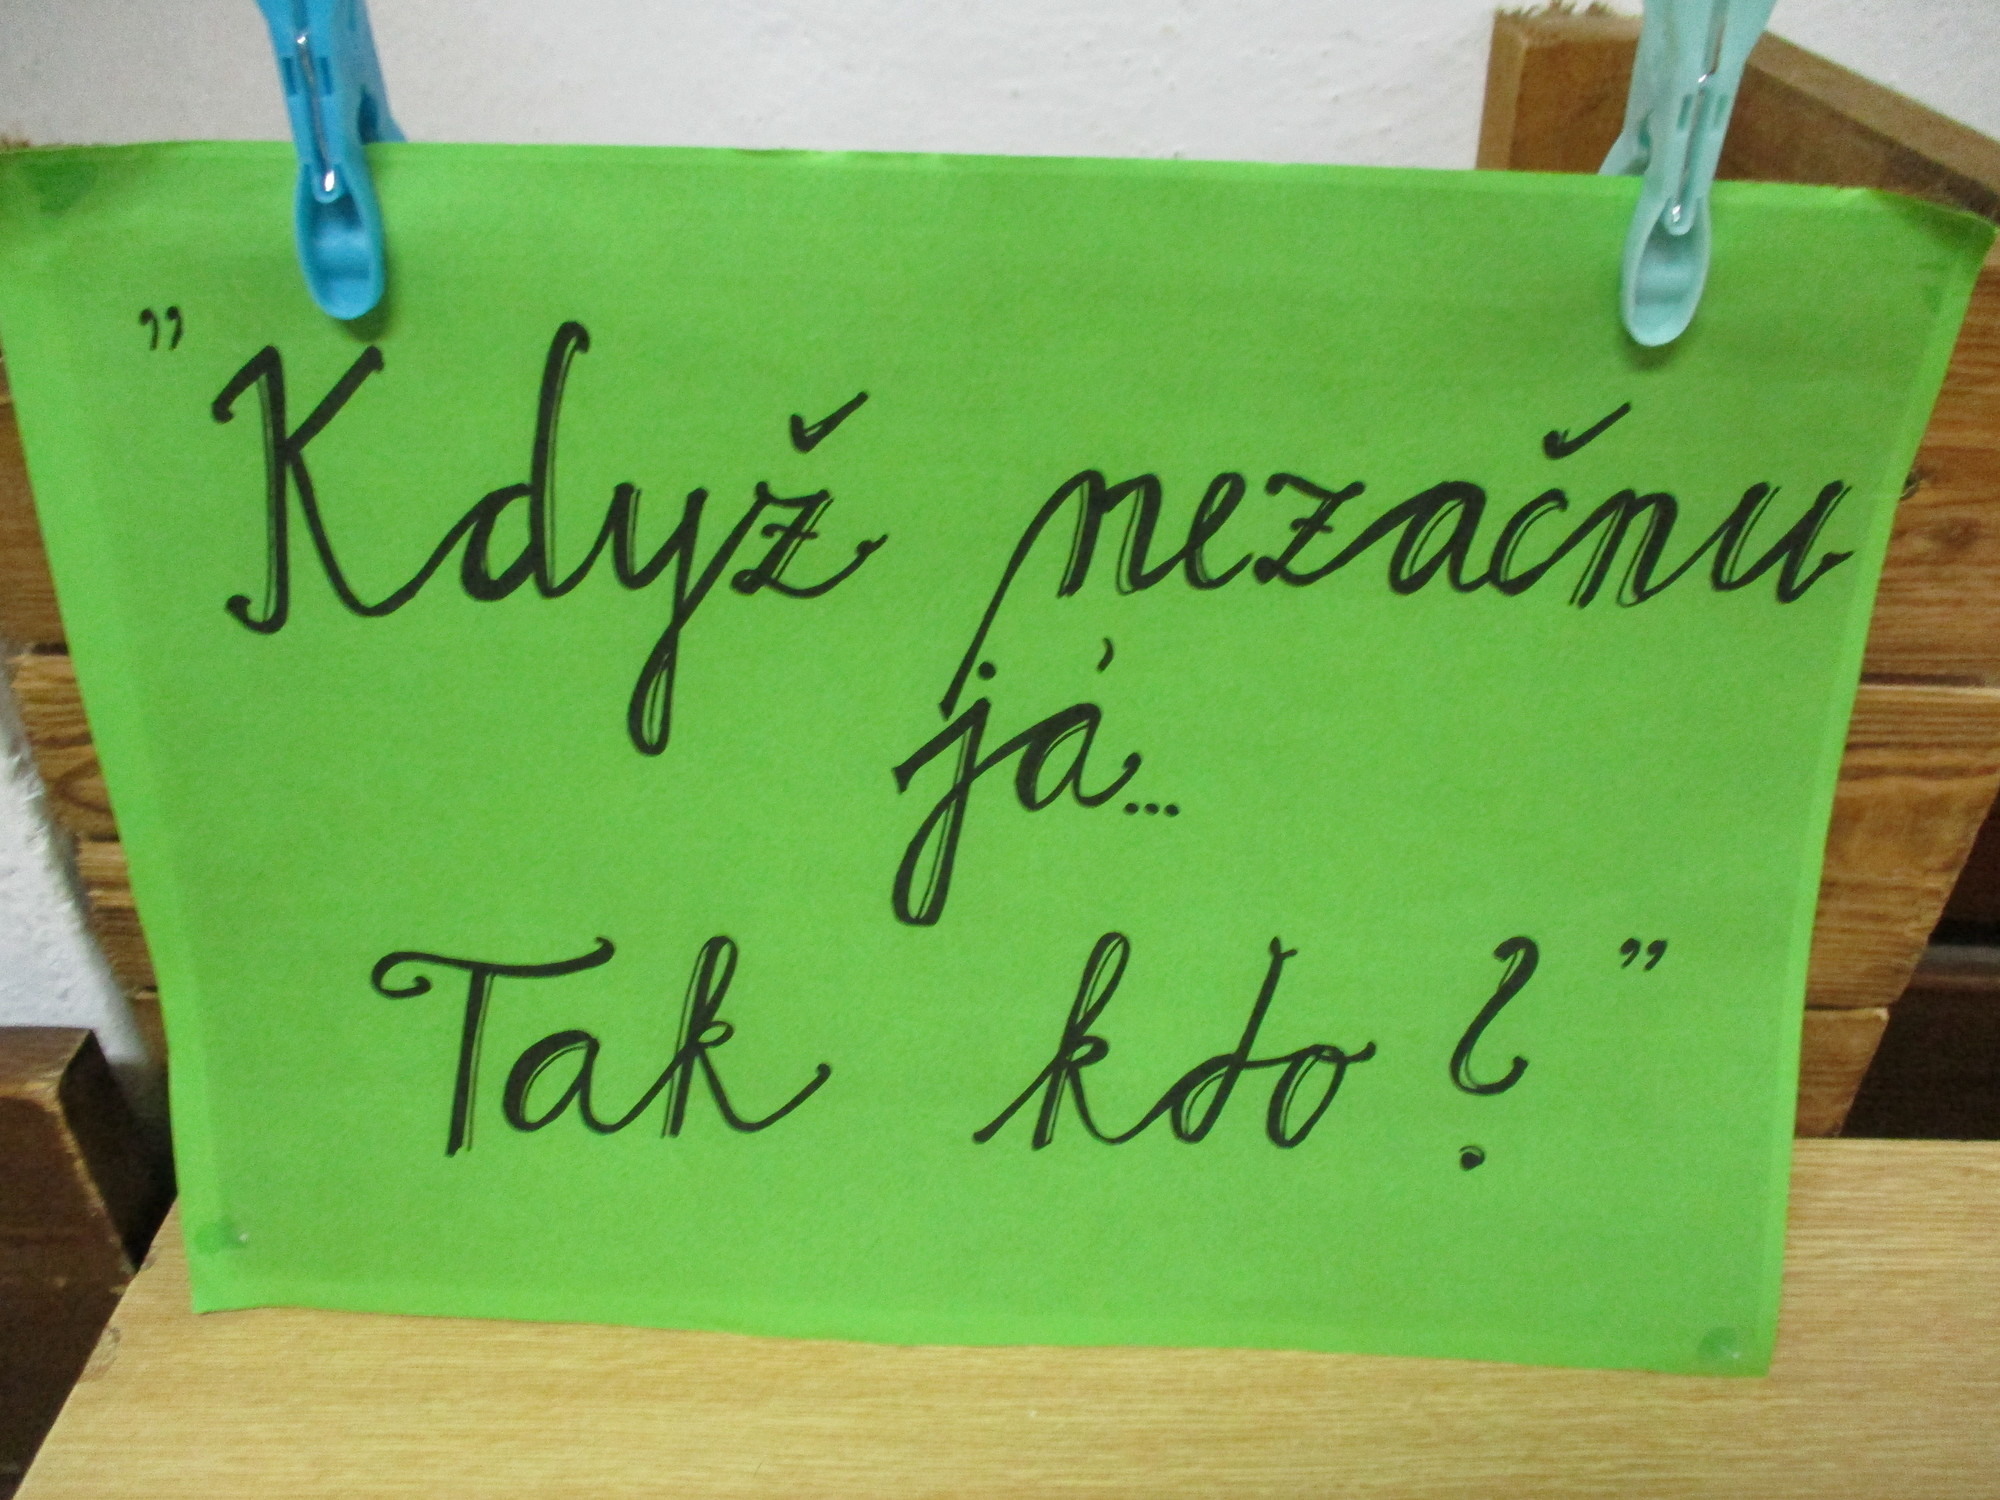 "Když nezačnu
já...
Tak kdo?"